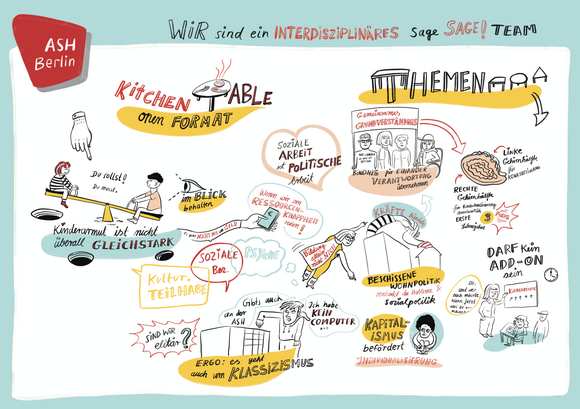 ASH
Berlin
WiR sind ein INTERDISZIPLINÄRES Sage SAGE! TEAM
KitCHEN TABLE
OPEN FORMAT
THEMEN
Du sollst!
Du musst.
im BLICK
behalten
Kinderarmut ist nicht
überall GLEICHSTARK
SOZIALE
ARBEIT
ist POLITISCHE
Arbeit
Wenn wir von
RESSOURCEN-
KNAPPHEIT
reden!!
SOZIALE
Bez.
PSYche
Kultur.
TEILHABE
SIND WIR
elitär?
Gibts auch
an der
ASH
Ich habe
KEIN
COMPUTER
ERGO: es geht
auch um KLASSIZISMUS
Gemeinsames
GRUNDVERSTÄNDNIS
BÜNDNIS für EINANDER
VERANTWORTUNG
übernehmen
KRÄFTE
Bildung
BESCHISSENE
WOHNPOLITIK
Sozialpolitik
KAPITAL-
iSMUS
befördert
INDIVIDUALISIERUNG
LINKE
Gehirnhälfte
für
RECHTE
Gehirnhälfte
ERSTE
Lebensjahre
DARF KEIN
ADD-ON
sein